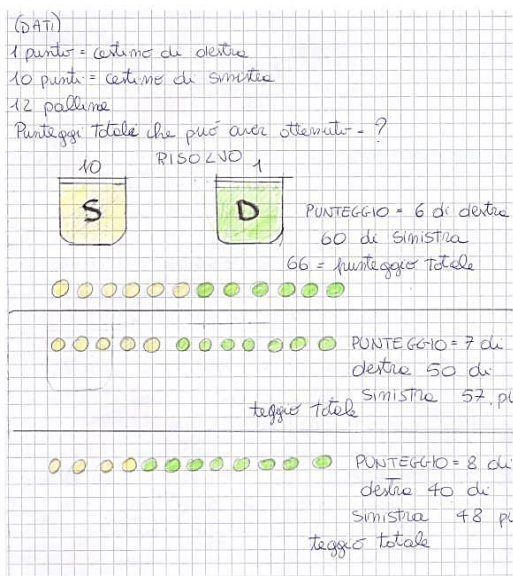 (DATI)
1 punto = cestino di destra
10 punti = cestino di sinistra
12 palline
Punteggi totale che può aver ottenuto = ?
RISOLVO
10 1
S D
PUNTEGGIO = 6 di destra
60 di sinistra
66 = punteggio totale
PUNTEGGIO = 7 di
destra 50 di
sinistra 57. pu
teggio totale
PUNTEGGIO = 8 di
destra 40 di
sinistra 48 pu
teggio totale